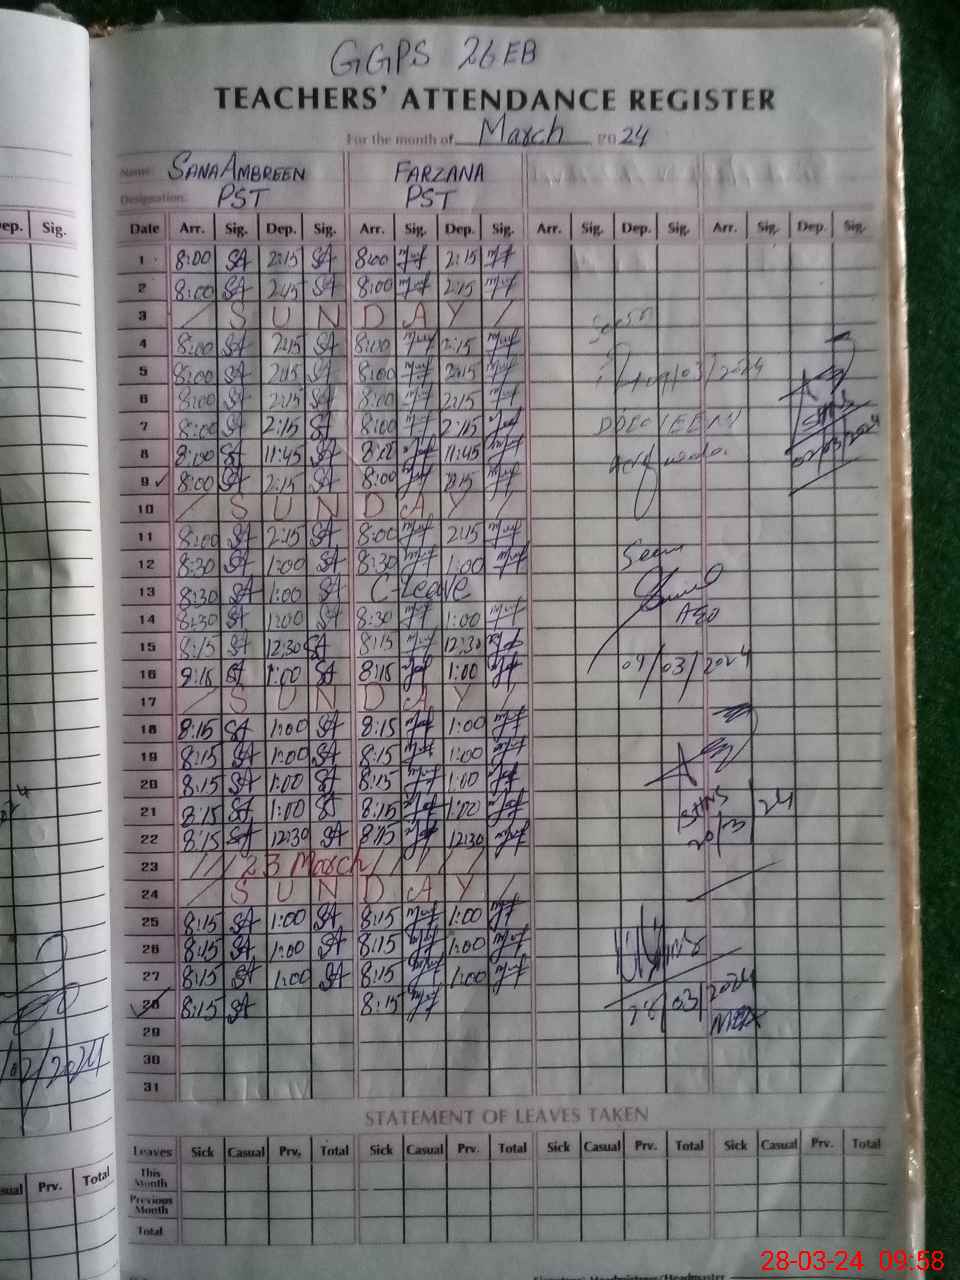 GGPS 26 EB
TEACHERS' ATTENDANCE REGISTER
For the month of March 2024
Name: SANA AMBREEN FARZANA
Designation: PST PST
ep. Sig. Date Arr. Sig. Dep. Sig. Arr. Sig. Dep. Sig. Arr. Sig. Dep. Sig. Arr. Sig. Dep. Sig.
1 8:00 SA 2:15 SA 8:00 2:15
2 8:00 SA 2:15 SA 8:00 2:15
3 SUNDAY
4 8:00 SA 2:15 SA 8:00 2:15
5 8:00 SA 2:15 SA 8:00 2:15
6 8:00 SA 2:15 SA 8:00 2:15
7 8:00 SA 2:15 SA 8:00 2:15
8 8:00 SA 11:45 SA 8:00 11:45
9 8:00 SA 2:15 SA 8:00 2:15
10 SUNDAY
11 8:00 SA 2:15 SA 8:00 2:15
12 8:30 SA 1:00 SA 8:30 1:00
13 8:30 SA 1:00 SA C-Leave
14 8:30 SA 1:00 SA 8:30 1:00
15 8:15 SA 12:30 SA 8:15 12:30
16 8:15 SA 1:00 SA 8:15 1:00
17 SUNDAY
18 8:15 SA 1:00 SA 8:15 1:00
19 8:15 SA 1:00 SA 8:15 1:00
20 8:15 SA 1:00 SA 8:15 1:00
21 8:15 SA 1:00 SA 8:15 1:00
22 8:15 SA 12:30 SA 8:15 12:30
23 23 March
24 SUNDAY
25 8:15 SA 1:00 SA 8:15 1:00
26 8:15 SA 1:00 SA 8:15 1:00
27 8:15 SA 1:00 SA 8:15 1:00
28 8:15 SA 8:15
29
30
31
Seen
AEO
/03/2024
20/3/24
/03/2024
/02/2024
STATEMENT OF LEAVES TAKEN
Leaves Sick Casual Prv, Total Sick Casual Prv. Total Sick Casual Prv. Total Sick Casual Prv. Total
This Month
Previous Month
Total
sual Prv. Total
28-03-24 09:58